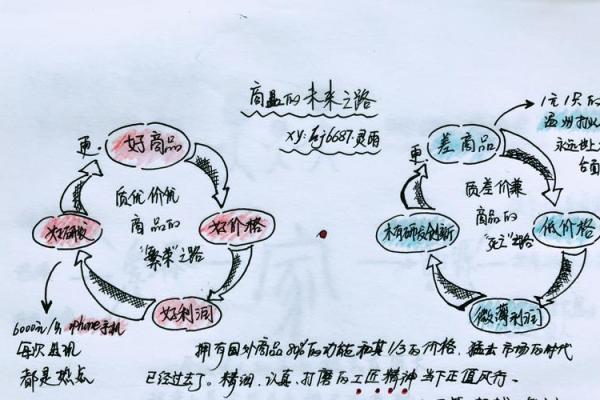 商品的未来之路
xy:hj6687.灵雨
更.
好商品
质优价优
商品的
"繁荣"之路
好价格
好利润
好研发
6000元/部 iphone手机
每次出机
都是热点
更.
差商品
质差价廉
商品的
"死亡"之路
低价格
微薄利润
没有研发创新
1元1只的
温州打火
永远上
台面
拥有国外商品80%的功能和其1/3的价格,
市场的时代
已经过去了。精湛、认真、打磨的工匠精神当下正值风行。